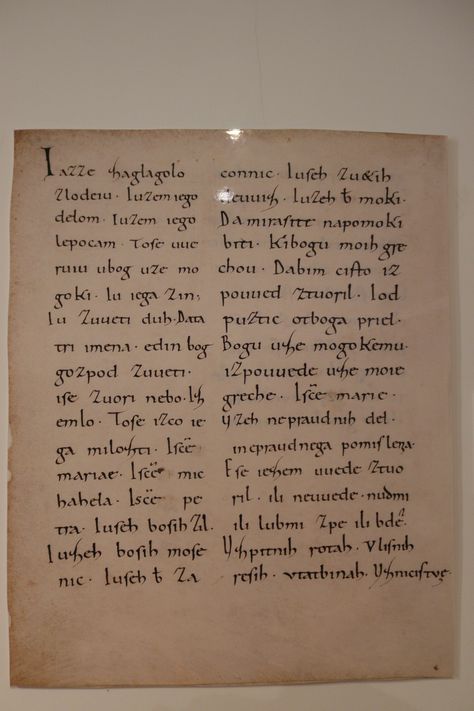 Iazze zaglagolo
zlodeiu. Iuzem iego
delom. Iuzem iego
lepocam. Tose uue
ruiu ubog uze mo
goki. Iu iega zin,
Iu zuueti duh. Data
tri imena. edin bog
gozpod zuueti.
ise zuori nebo. Iz
emlo. Tose izco ie
ga milozti. Iscē
mariae. Iscē mic
hahela. Iscē pe
tra. Iuseh bosih zil.
Iuzeh bosih mose
nic. Iuseh ƀ za
connic. Iuseh zuetih
devuiz. Iuzeh ƀ moki.
Da mirastte napomoki
biti. Kibogu moih gre
chou. Dabim cisto iz
pouued ztuoril. Iod
puztic otboga priel.
Bogu uze mogokemu.
izpouuede uze moie
greche. Iscē marie.
uzeh nepraudnih del.
inepraudnega pomislera.
Ese iezem uuede ztuo
ril. ili neuuede. nudmi
ili lubmi zpe ili bdē.
Uzpitnih rotah. Vlisnih
resih. vtatbinah. Uznicistue.